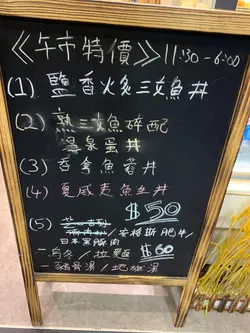 《午市特價》11:30-6:00
(1) 鹽香火炙三文魚丼
(2) 熟三文魚碎配
温泉蛋丼
(3) 吞拿魚蓉丼
(4) 夏威夷魚生丼
$50
(5) /安格斯肥牛
日本黑豚肉
=烏冬/拉麵 $60
=豬骨湯/地獄湯